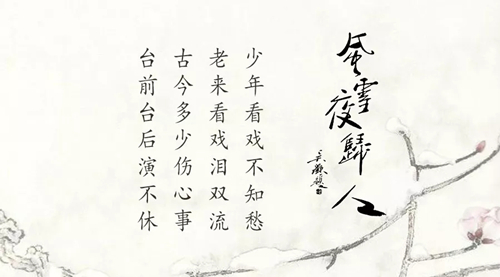 風雪夜歸人
吴祖光
少年看戏不知愁
老来看戏泪双流
古今多少伤心事
台前台后演不休